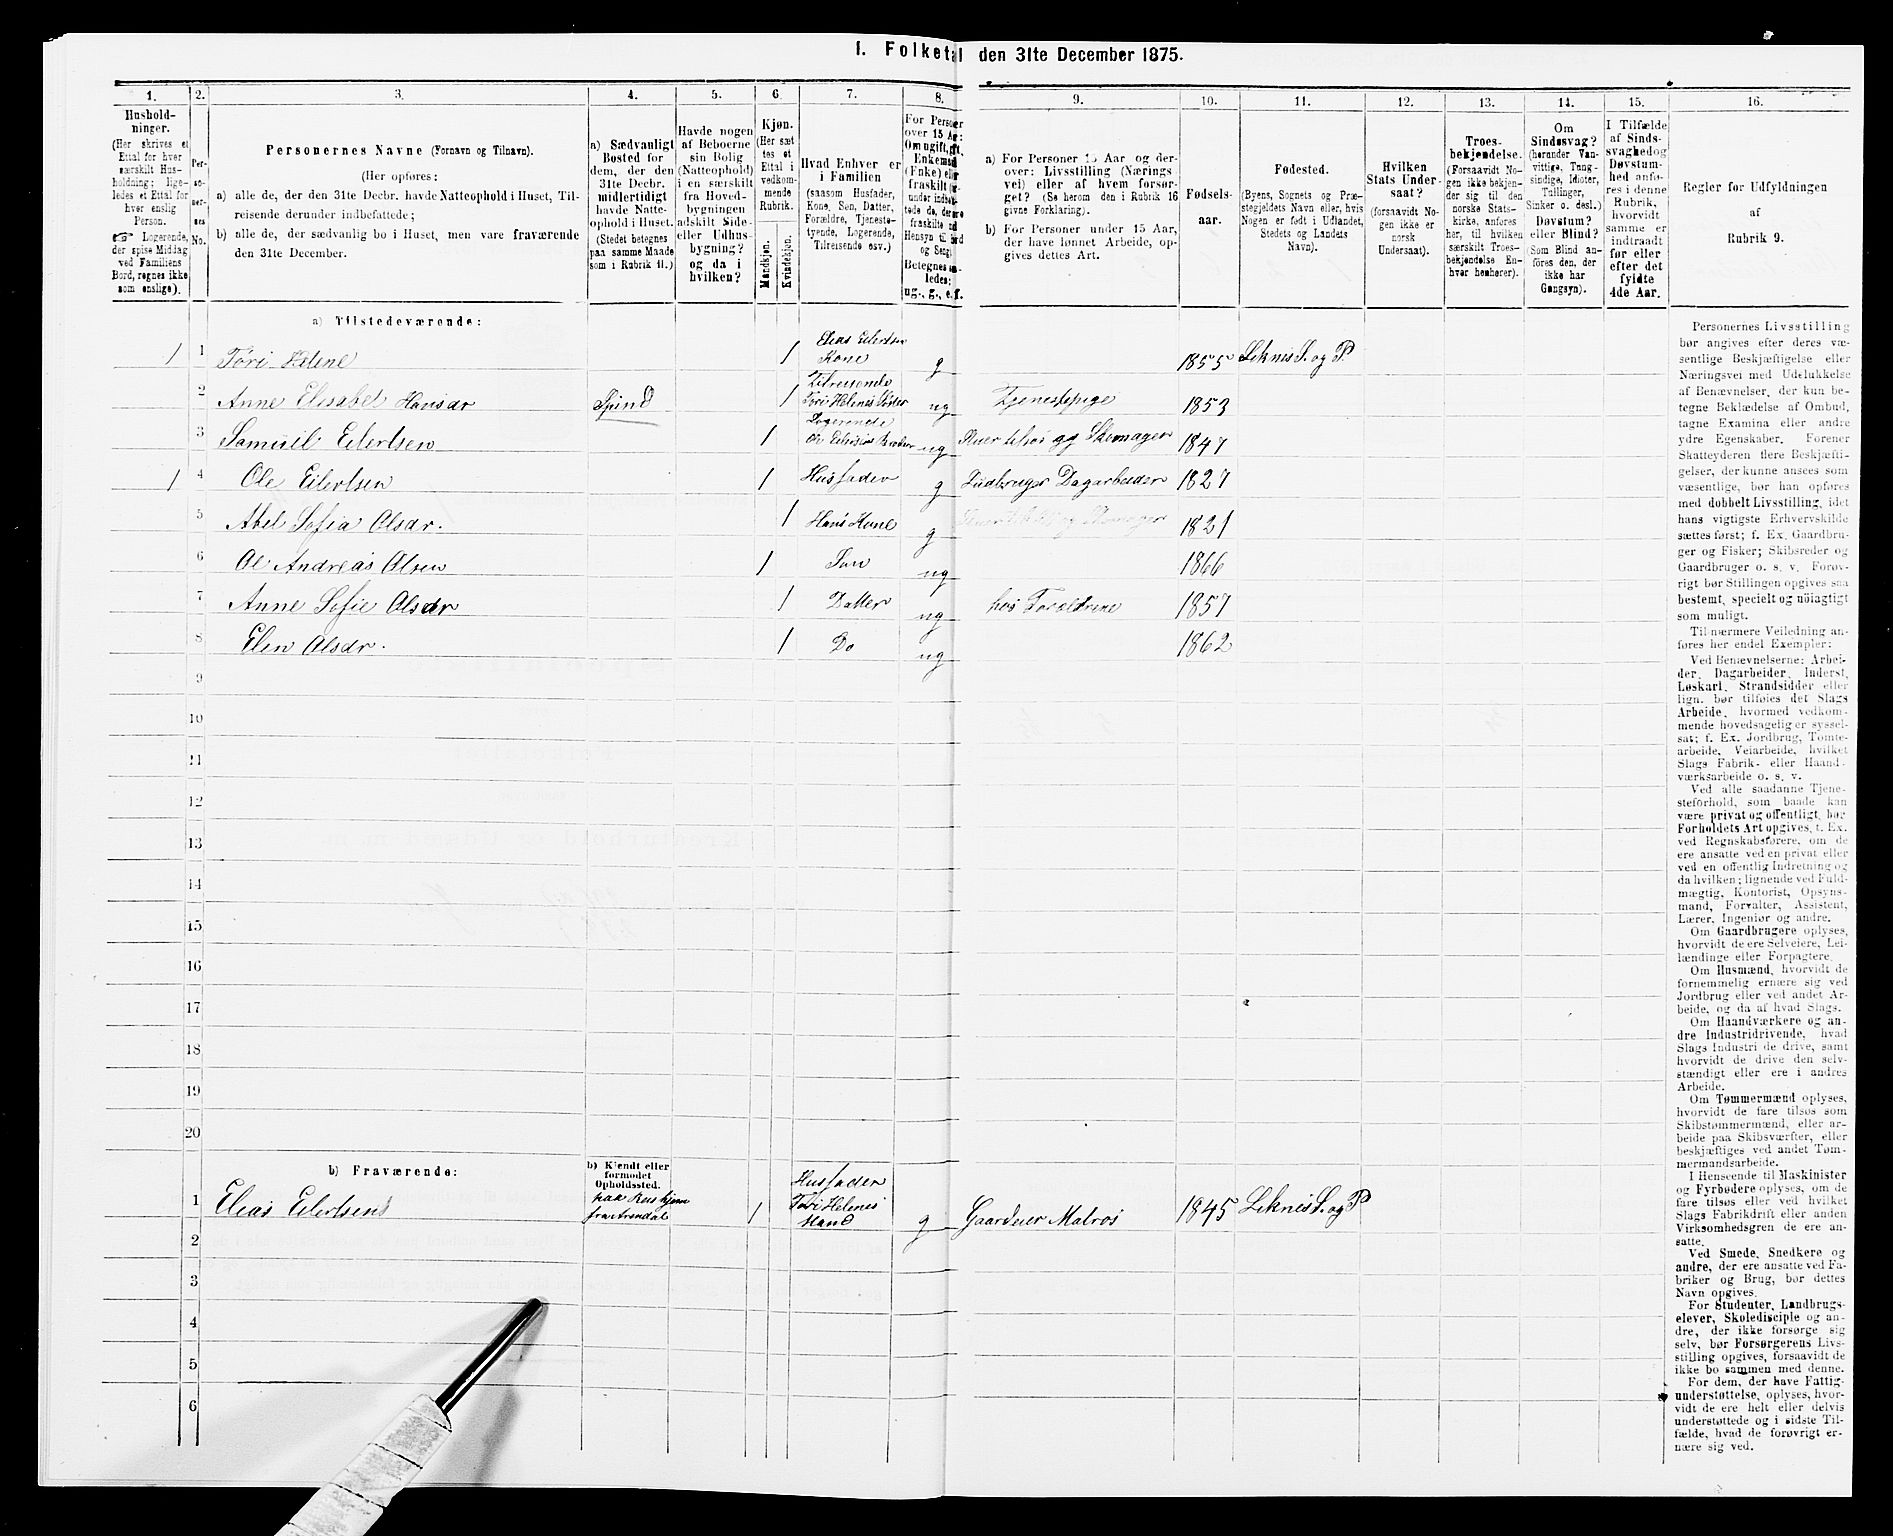 1. Folketal den 31te December 1875.
1. 2. 3. 4. 5. 6. 7. 8. 9. 10. 11. 12. 13. 14. 15. 16.
Hushold-
ninger.
(Her skrives et
Ettal for hver
særskilt Hus-
holdning; lige-
ledes et Ettal for
hver enslig
Person.
☞ Logerende,
der spise Middag
ved Familiens
Bord, regnes ikke
som enslige).
Per-
so-
ner-
nes
No.
Personernes Navne (Fornavn og Tilnavn).
(Her opføres:
a) alle de, der den 31te Decbr. havde Natteophold i Huset, Til-
reisende derunder indbefattede;
b) alle de, der sædvanlig bo i Huset, men vare fraværende
den 31te December.
a) Sædvanligt
Bosted for
dem, der den
31te Decbr.
midlertidigt
havde Natte-
ophold i Huset.
(Stedet betegnes
paa samme Maade
som i Rubrik 11.)
Havde nogen
af Beboerne
sin Bolig
(Natteophold)
i en særskilt
fra Hoved-
bygningen
adskilt Side-
eller Udhus-
bygning?
og da i
hvilken?
Kjøn.
(Her sæt
tes et
Ettal i
vedkom-
mende
Rubrik.
Mandkjøn.
Kvindekjøn.
Hvad Enhver er
i Familien
(saasom Husfader,
Kone, Søn, Datter,
Forældre, Tjeneste-
tyende, Logerende,
Tilreisende osv.)
For Personer
over 15 Aar:
Om ugift, gift,
Enkemand
(Enke) eller
fraskilt
Betegnes saa-
ledes:
ug., g., e., f.
a) For Personer 15 Aar og der-
over: Livsstilling (Nærings
vei) eller af hvem forsør-
get? (Se herom den i Rubrik 16
givne Forklaring).
b) For Personer under 15 Aar,
der have lønnet Arbeide, op-
gives dettes Art.
Fødsels-
aar.
Fødested.
(Byens, Sognets og Præ-
stegjeldets Navn eller, hvis
Nogen er født i Udlandet,
Stedets og Landets
Navn).
Hvilken
Stats Under-
saat?
(forsaavidt No-
gen ikke er
norsk
Undersaat).
Troes-
bekjendelse.
(Forsaavidt No-
gen ikke bekjen-
der sig til den
norske Stats-
kirke, anføres
her, til hvilken
særskilt Troes-
bekjendelse En-
hver henhører).
Om
Sindssvag?
(herunder Van-
vittige, Tung-
sindige, Idioter,
Tullinger,
Sinker o. desl.)
Døvstum?
eller Blind?
(Som Blind an-
føres den, der
ikke har
Gangsyn).
I Tilfælde
af Sinds-
svaghed og
Døvstum-
hed anfø-
res i denne
Rubrik,
hvorvidt
samme er
indtraadt
før eller
efter det
fyldte
4de Aar.
Regler for Udfyldningen
af
Rubrik 9.
a) Tilstedeværende:
1 1 Tøri Helene 1 Elias Eilertsen Kone g 1855 Leknes S. og P
2 Anne Elisabet Hansdr Spind 1 Tilreisende Tøri Helenes Søster ug Tjenestepige 1853
3 Samuil Eilertsen 1 Logerende ug 1847
1 4 Ole Eilertsen 1 Husfader g Dagarbeider 1827
5 Abel Sofia Olsdr. 1 Hans Kone g 1821
6 Ol Andreas Olsen 1 Søn ug 1866
7 Anne Sofie Olsdr 1 Datter ug hos Forældrene 1857
8 Elen Olsdr. 1 Do ug 1862
9
10
11
12
13
14
15
16
17
18
19
20
b) Fraværende:
b) Kjendt eller
formodet
Opholdssted.
1 Elias Eilertsen paa Reis hjem fra Arendal 1 Husfader Tøri Helenes Mand g Gaardeier Matros 1845 Leknes S. og P
2
3
4
5
6
Personernes Livsstilling
bør angives efter deres væ-
sentlige Beskjæftigelse eller
Næringsvei med Udelukkelse
af Benævnelser, der kun be-
tegne Beklædelse af Ombud,
tagne Examina eller andre
ydre Egenskaber. Forener
Skatteyderen flere Beskjæfti-
gelser, der kunne ansees som
væsentlige, bør han opføres
med dobbelt Livsstilling, idet
hans vigtigste Erhvervskilde
sættes først; f. Ex. Gaardbru-
ger og Fisker; Skibsreder og
Gaardbruger o. s. v. Forøv-
rigt bør Stillingen opgives saa
bestemt, specielt og nøiagtigt
som muligt.
Til nærmere Veiledning an-
føres her endel Exempler:
Ved Benævnelserne: Arbei-
der, Dagarbeider, Inderst,
Løskarl, Strandsidder eller
lign. bør tilføies det Slags
Arbeide, hvormed vedkom-
mende hovedsagelig er syssel-
sat; f. Ex. Jordbrug, Tomte-
arbeide, Veiarbeide, hvilket
Slags Fabrik- eller Haand-
værksarbeide o. s. v.
Ved alle saadanne Tjene-
steforhold, som baade kan
være privat og offentligt, bør
Forholdets Art opgives, f. Ex.
ved Regnskabsførere, om de
ere ansatte ved en privat eller
ved en offentlig Indretning og
da hvilken; lignende ved Fuld-
mægtig, Kontorist, Opsyns-
mand, Forvalter, Assistent,
Lærer, Ingeniør og andre.
Om Gaardbrugere oplyses,
hvorvidt de ere Selveiere, Lei-
lændinge eller Forpagtere.
Om Husmænd, hvorvidt de
fornemmelig ernære sig ved
Jordbrug eller ved andet Ar-
beide, og da af hvad Slags.
Om Haandværkere og an-
dre Industridrivende, hvad
Slags Industri de drive, samt
hvorvidt de drive den selv-
stændigt eller ere i andres
Arbeide.
Om Tømmermænd oplyses,
hvorvidt de fare tilsøs som
Skibstømmermænd, eller ar-
beide paa Skibsværfter, eller
beskjæftiges ved andet Tøm-
mermandsarbeide.
I Henseende til Maskinister
og Fyrbødere oplyses, om de
fare tilsøs eller ved hvilket
Slags Fabrikdrift eller anden
Virksomhedsgren de ere an-
satte.
Ved Smede, Snedkere og
andre, der ere ansatte ved Fa-
briker og Brug, bør dettes
Navn opgives.
For Studenter, Landbrugs-
elever, Skoledisciple og an-
dre, der ikke forsørge sig
selv, bør Forsørgerens Livs-
stilling opgives, forsaavidt de
ikke bo sammen med denne.
For dem, der have Fattig-
understøttelse, oplyses, hvor-
vidt de ere helt eller delvis
understøttede og i sidste Til-
fælde, hvad de forøvrigt er-
nære sig ved.